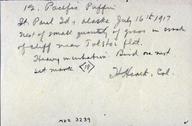 1/2. Pacific Puffin
St. Paul Id; Alaska July 16th 1917
Nest of small quantity of grass in crack
of cliff near Tolstoi flat.
Heavy incubation Bird on nest
Set mark 19
Col.
MVZ 3239